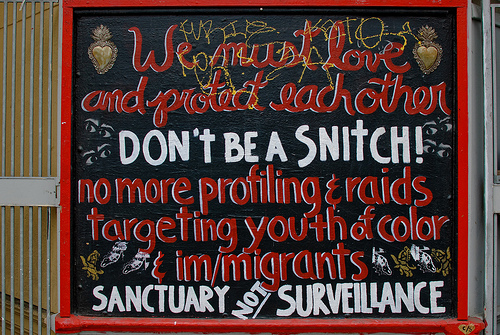 We must love
and protect each other
DON'T BE A SNITCH!
no more profiling & raids
targeting youth of color
& im/migrants
SANCTUARY NOT SURVEILLANCE